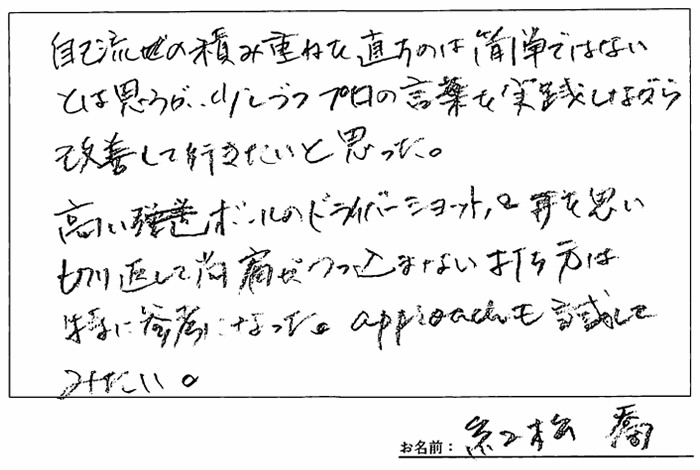 自己流の積み重ねを直すのは簡単ではない
とは思うが、少しづつプロの言葉を実践しながら
改善して行きたいと思った。
高い ボールのドライバーショット、 を思い
切り返して右肩がつっ込まない打ち方は
特に参考になった。approachも試して
みたい。
お名前：紅松 喬